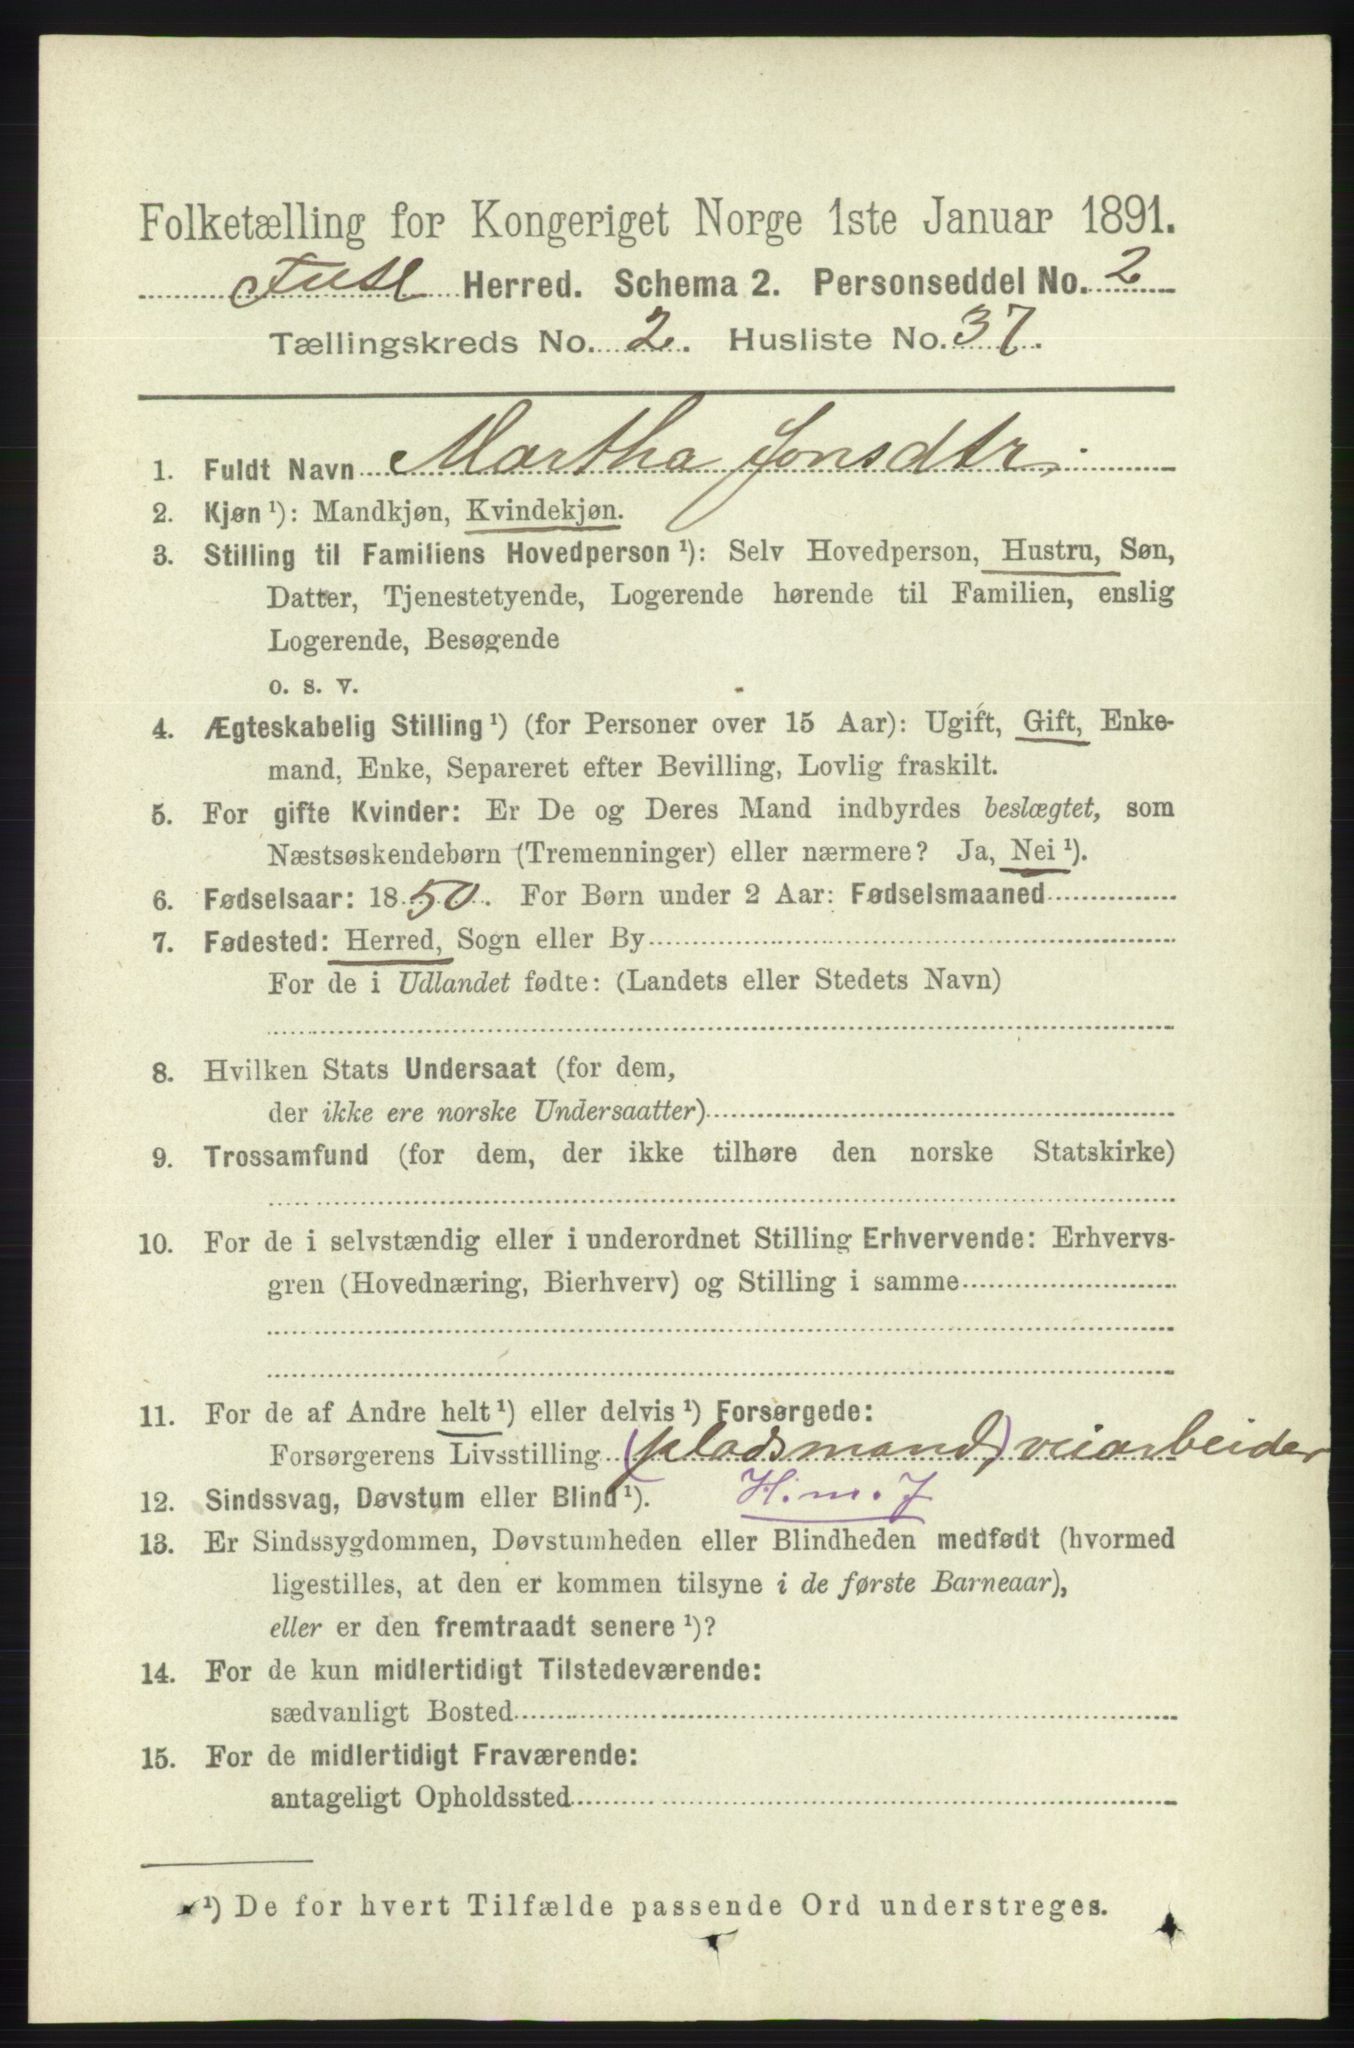 Folketælling for Kongeriget Norge 1ste Januar 1891.
Fuse Herred. Schema 2. Personseddel No. 2
Tællingskreds No. 2. Husliste No. 37.
1. Fuldt Navn Martha Jonsdtr.
2. Kjøn ¹): Mandkjøn, Kvindekjøn.
3. Stilling til Familiens Hovedperson ¹): Selv Hovedperson, Hustru, Søn,
Datter, Tjenestetyende, Logerende hørende til Familien, enslig
Logerende, Besøgende
o. s. v.
4. Ægteskabelig Stilling ¹) (for Personer over 15 Aar): Ugift, Gift, Enke-
mand, Enke, Separeret efter Bevilling, Lovlig fraskilt.
5. For gifte Kvinder: Er De og Deres Mand indbyrdes beslægtet, som
Næstsøskendebørn (Tremenninger) eller nærmere? Ja, Nei ¹).
6. Fødselsaar: 1850. For Børn under 2 Aar: Fødselsmaaned
7. Fødested: Herred, Sogn eller By
For de i Udlandet fødte: (Landets eller Stedets Navn)
8. Hvilken Stats Undersaat (for dem,
der ikke ere norske Undersaatter)
9. Trossamfund (for dem, der ikke tilhøre den norske Statskirke)
10. For de i selvstændig eller i underordnet Stilling Erhvervende: Erhvervs-
gren (Hovednæring, Bierhverv) og Stilling i samme
11. For de af Andre helt ¹) eller delvis ¹) Forsørgede:
Forsørgerens Livsstilling (pladsmand,) veiarbeider
12. Sindssvag, Døvstum eller Blind ¹). H. m. J
13. Er Sindssygdommen, Døvstumheden eller Blindheden medfødt (hvormed
ligestilles, at den er kommen tilsyne i de første Barneaar),
eller er den fremtraadt senere ¹)?
14. For de kun midlertidigt Tilstedeværende:
sædvanligt Bosted
15. For de midlertidigt Fraværende:
antageligt Opholdssted
¹) De for hvert Tilfælde passende Ord understreges.